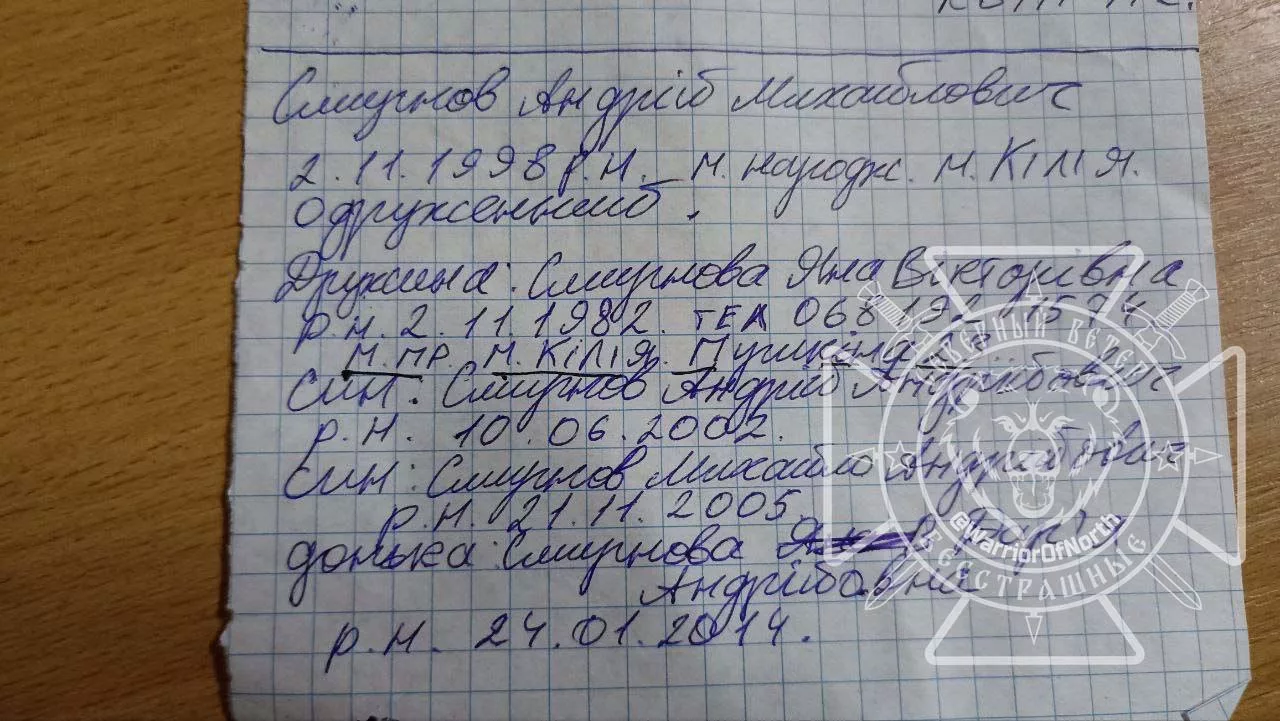 Смирнов Андрій Михайлович
2.11.1998 р.н. м. народж. м. Кілія.
одружений.
Дружина: Смирнова Яна Вікторівна
р.н. 2.11.1982. тел 068
м.пр. м. Кілія.
син: Смирнов Андрій Андрійович
р.н. 10.06.2002.
син: Смирнов Михайло Андрійович
р.н. 21.11.2005
донька: Смирнова
Андріївна
р.н. 24.01.2014.
СЕВЕРНЫЙ ВЕТЕР
@WarriorOfNorth
БЕССТРАШНЫЕ